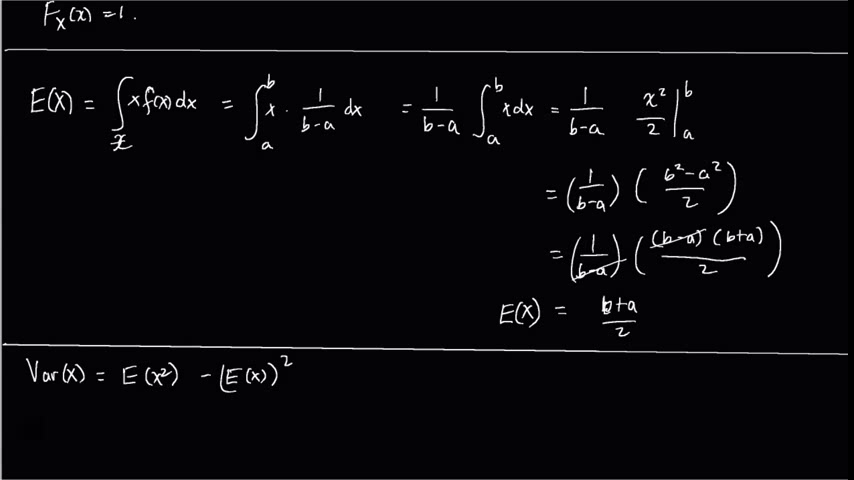 F_X(x) = 1.
E(X) = ∫_𝒳 x f(x) dx = ∫_a^b x · 1/(b-a) dx = 1/(b-a) ∫_a^b x dx = 1/(b-a) x²/2 |_a^b
= (1/(b-a)) ((b² - a²)/2)
= (1/(b-a)) ((b-a)(b+a)/2)
E(X) = (b+a)/2
Var(X) = E(X²) - (E(X))²